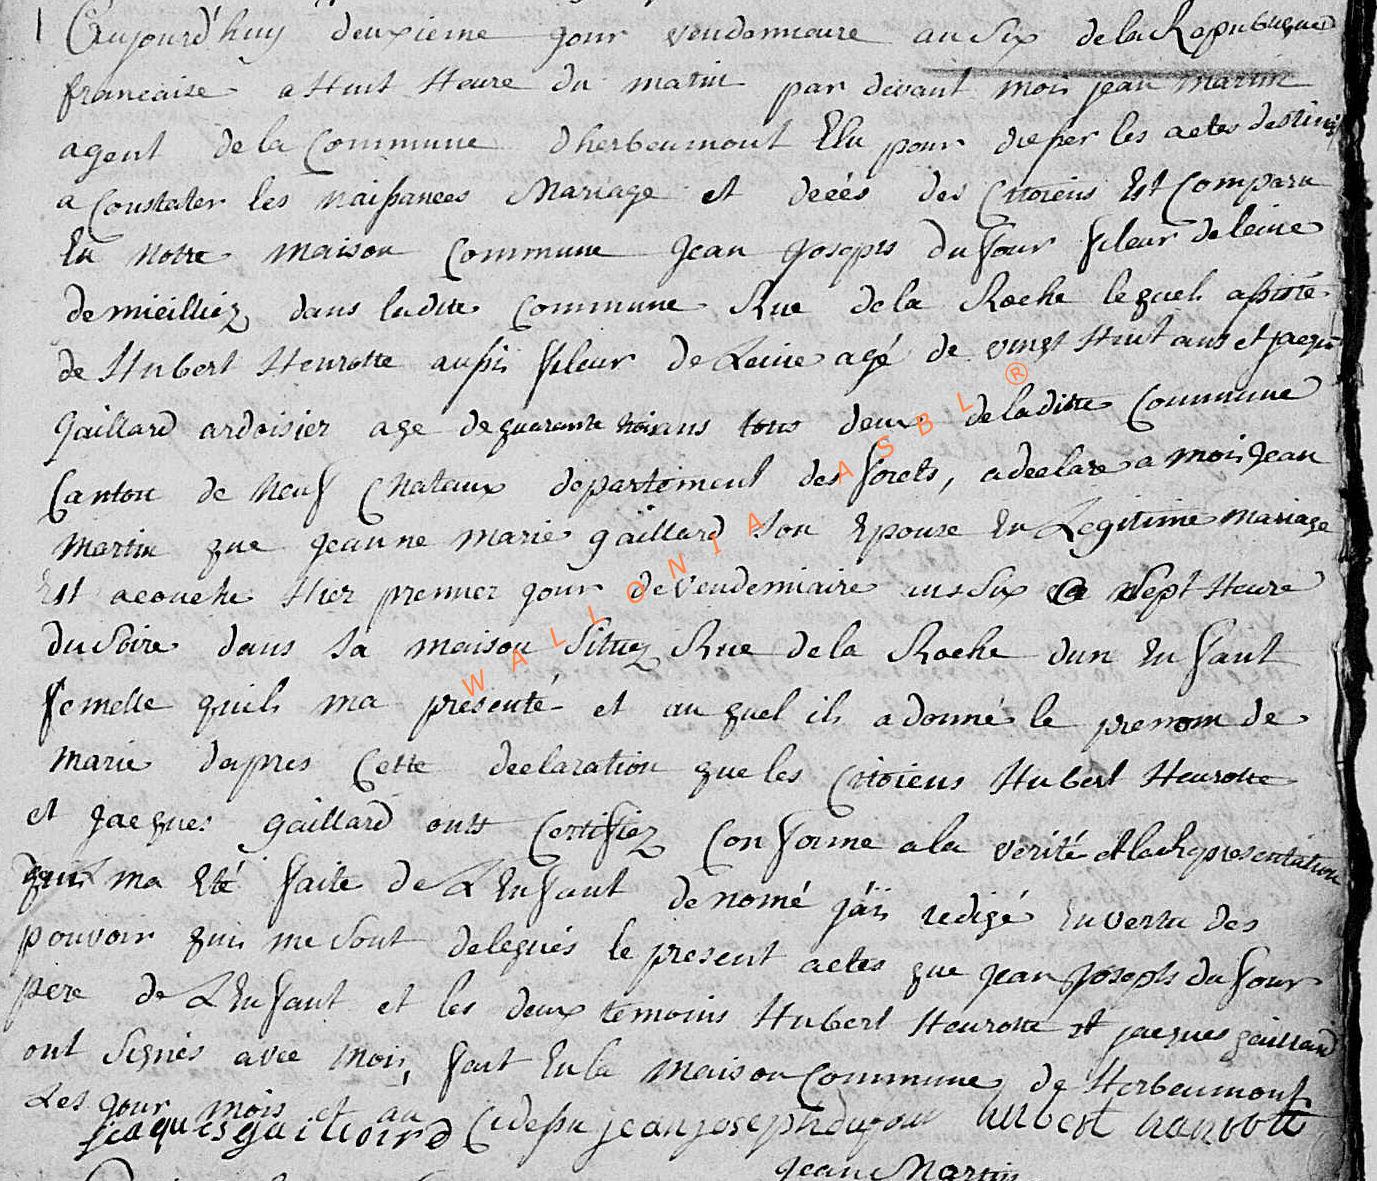 Aujourd'huy deuxieme jour vendemiaire an Six de la Republique
francaise a Huit Heure du matin par devant mois jean martin
agent de la Commune d'herbeumont Elu pour dresser les actes destinés
a Constater les naissances Mariage et décés des Citoiens Est Comparu
En notre maison Commune jean joseph dufour fileur de leine
demieilliez dans ladite Commune Rue de la Roche lequel assisté
de Hubert Henrotte aussi fileur de Leine agé de vingt Huit ans et jacque
gaillard ardoisier age de quarante trois ans tous deux de ladite Commune
Canton de neuf Chateaux departement des forets, a declare a mois jean
Martin que jeanne marie gaillard Son Epouse En Legitime mariage
Est acouche Hier premier jour de Vendemiaire an Six a Sept Heure
du Soire dans sa maison Situez Rue de la Roche dun Enfant
femelle quils ma presenté et au quel ils a donné le prenom de
Marie dapres Cette declaration que les Citoiens Hubert Henrotte
et jacques gaillard ont Certifiez Conforme a la verité et la Representation
quis ma Eté faite de L Enfant denomé jais redigé En vertu des
pouvoir quis me sont delegués le present actes que jean joseph dufour
pere de L Enfant et les deux temoins Hubert Henrotte et jacques gaillard
ont Signés avec mois, fait En la maison Commune de Herbeumont
Les jour mois et an Cidessu jean joseph dufour hubert
jaques gailliard
jean Martin
WALLONIA ASBL ®